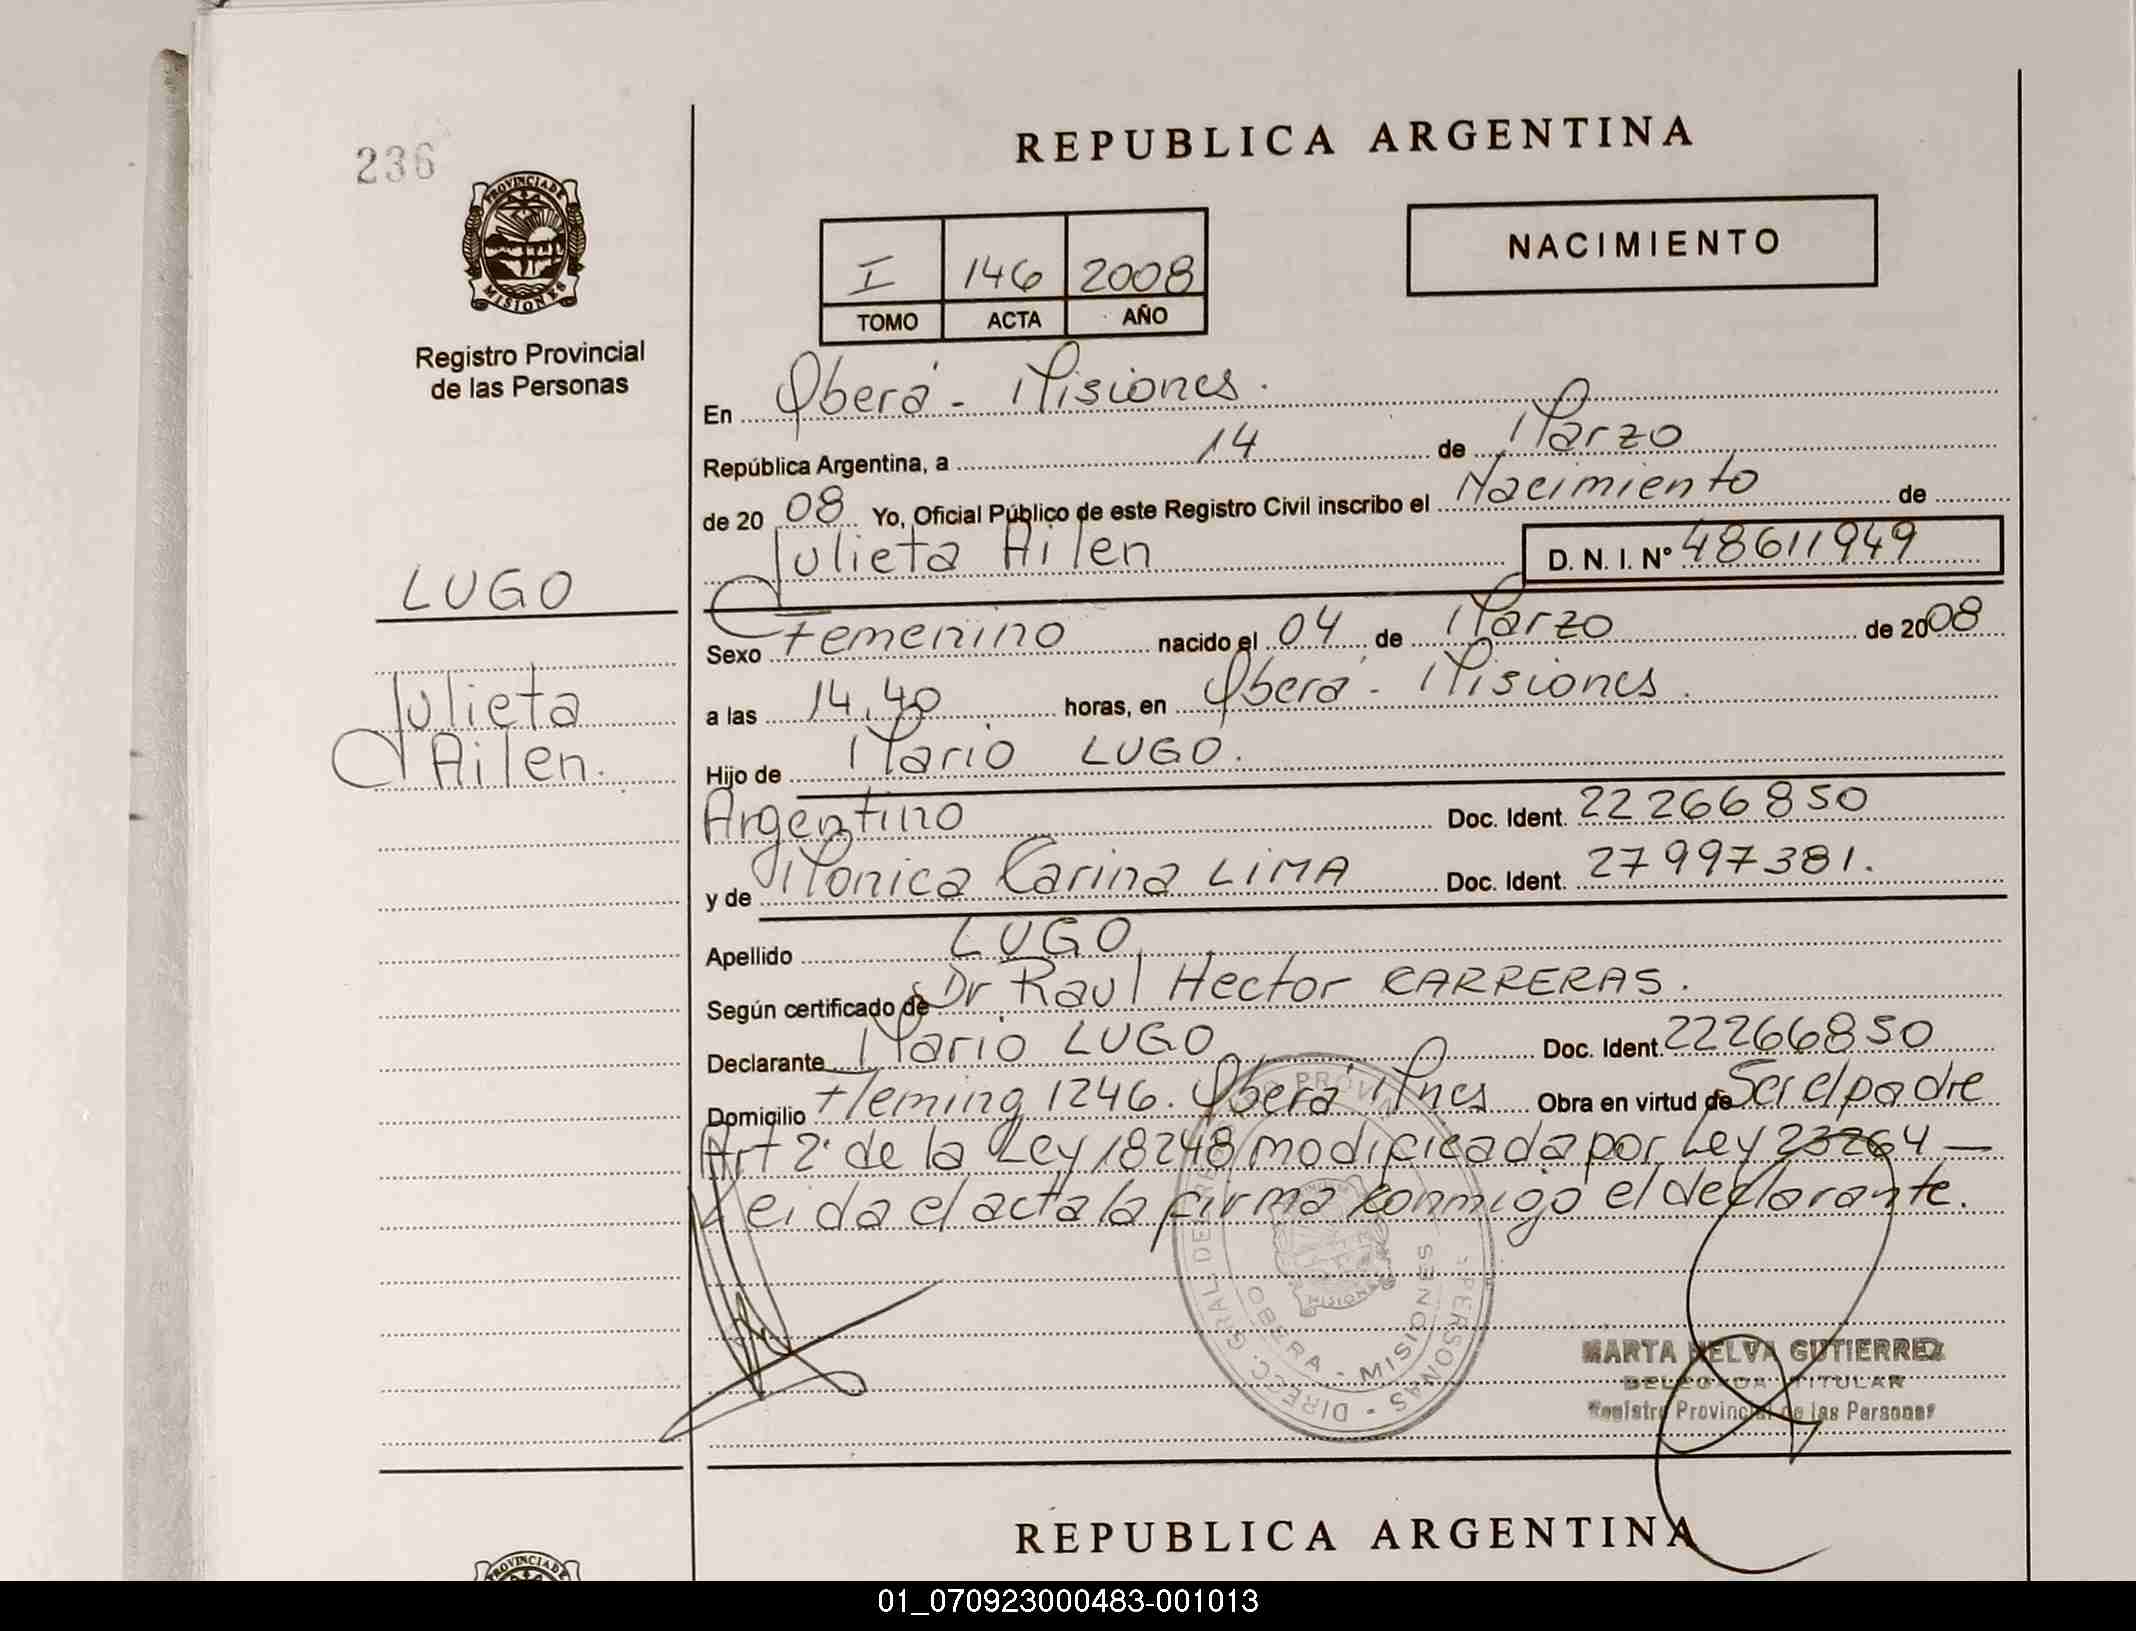 236
PROVINCIA DE
MISIONES
Registro Provincial
de las Personas
LUGO
Julieta
Ailen.
REPUBLICA ARGENTINA
NACIMIENTO
I 146 2008
TOMO ACTA AÑO
En Oberá - Misiones.
República Argentina, a 14 de Marzo
de 20 08 Yo, Oficial Público de este Registro Civil inscribo el Nacimiento de
Julieta Ailen D. N. I. N° 48611949
Sexo Femenino nacido el 04 de Marzo de 2008
a las 14,40 horas, en Oberá - Misiones.
Hijo de Mario LUGO.
Argentino Doc. Ident. 22266850
y de Monica Carina LIMA Doc. Ident. 27997381.
Apellido LUGO
Según certificado de Dr Raul Hector CARRERAS.
Declarante Mario LUGO Doc. Ident. 22266850
Domicilio Fleming 1246. Oberá Mnes Obra en virtud de Ser el padre
Art 2° de la Ley 18248 modificada por Ley 23264 —
Leida el acta la firma conmigo el declarante.
DIREC. GRAL DE REG PROVI PERSONAS -
OBERA - MISIONES
MISIONES
MARTA NELVA GUTIERREZ
DELEGADA TITULAR
Registro Provincial de las Personas
REPUBLICA ARGENTINA
PROVINCIA DE
01_070923000483-001013